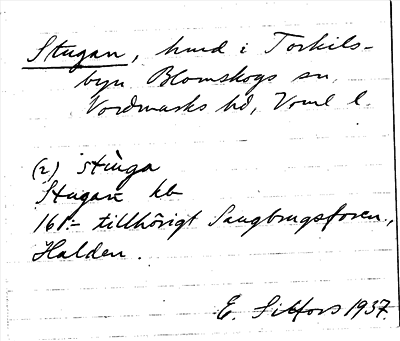 Stugan, hmd i Torkils-
byn, Blomskogs sn,
Nordmarks hd, Vrml l.
(2) stùga
Stugan kb
161:- tillhörigt Saugbrugsforen.,
Halden.
E. Sitfors 1937.